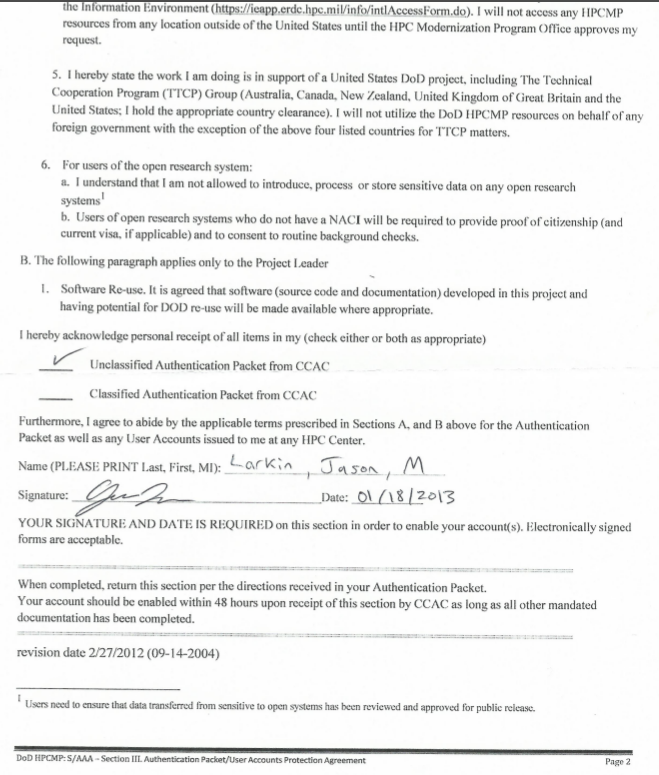 the Information Environment (https://ieapp.erdc.hpc.mil/info/intlAccessForm.do). I will not access any HPCMP
resources from any location outside of the United States until the HPC Modernization Program Office approves my
request.
5. I hereby state the work I am doing is in support of a United States DoD project, including The Technical
Cooperation Program (TTCP) Group (Australia, Canada, New Zealand, United Kingdom of Great Britain and the
United States; I hold the appropriate country clearance). I will not utilize the DoD HPCMP resources on behalf of any
foreign government with the exception of the above four listed countries for TTCP matters.
6. For users of the open research system:
a. I understand that I am not allowed to introduce, process or store sensitive data on any open research
systems1
b. Users of open research systems who do not have a NACI will be required to provide proof of citizenship (and
current visa, if applicable) and to consent to routine background checks.
B. The following paragraph applies only to the Project Leader
1. Software Re-use. It is agreed that software (source code and documentation) developed in this project and
having potential for DOD re-use will be made available where appropriate.
I hereby acknowledge personal receipt of all items in my (check either or both as appropriate)
✓ Unclassified Authentication Packet from CCAC
Classified Authentication Packet from CCAC
Furthermore, I agree to abide by the applicable terms prescribed in Sections A, and B above for the Authentication
Packet as well as any User Accounts issued to me at any HPC Center.
Name (PLEASE PRINT Last, First, MI): Larkin, Jason, M
Signature: Date: 01/18/2013
YOUR SIGNATURE AND DATE IS REQUIRED on this section in order to enable your account(s). Electronically signed
forms are acceptable.
When completed, return this section per the directions received in your Authentication Packet.
Your account should be enabled within 48 hours upon receipt of this section by CCAC as long as all other mandated
documentation has been completed.
revision date 2/27/2012 (09-14-2004)
1 Users need to ensure that data transferred from sensitive to open systems has been reviewed and approved for public release.
DoD HPCMP: S/AAA – Section III. Authentication Packet/User Accounts Protection Agreement Page 2